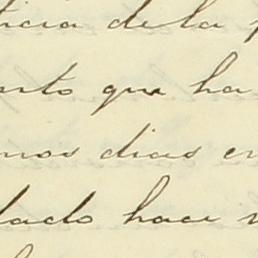 icia de la p
ento que ha
mos dias en
dado hace